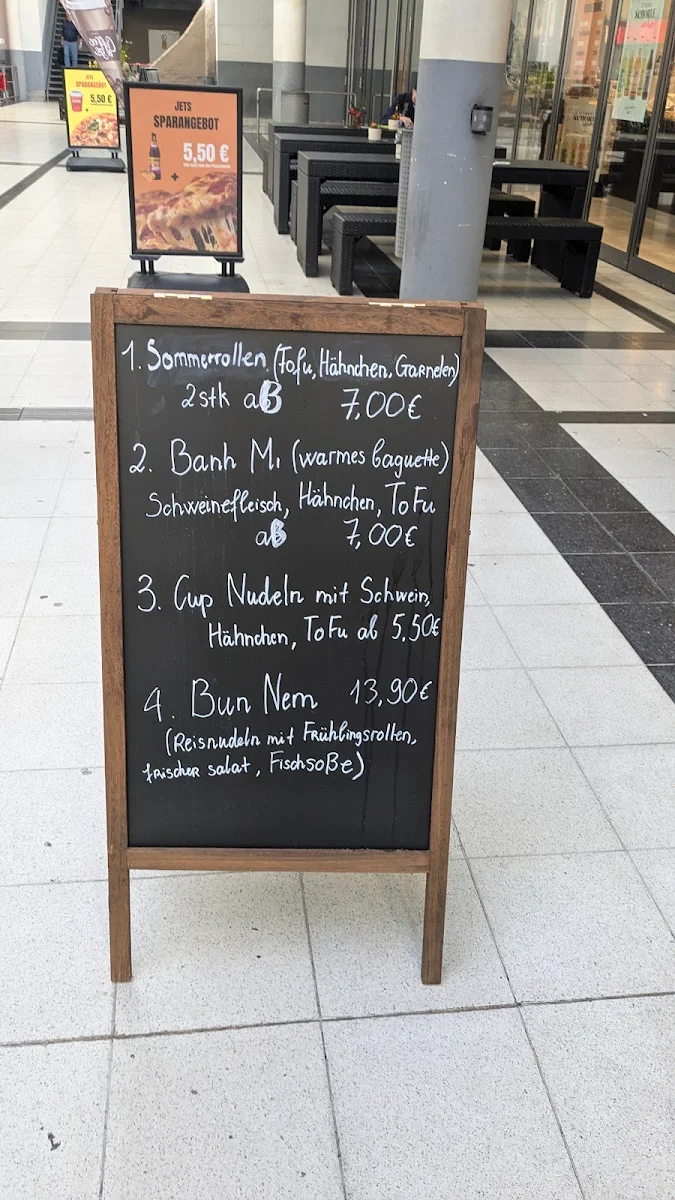 JETS
SPARANGEBOT
5,50 €
+
JETS
SPARANGEBOT
5,50 €
+
1. Sommerrollen (Tofu, Hähnchen, Garnelen)
2stk aB 7,00€
2. Banh Mi (warmes baguette)
Schweinefleisch, Hähnchen, ToFu
aB 7,00€
3. Cup Nudeln mit Schwein,
Hähnchen, ToFu ab 5,50€
4. Bun Nem 13,90€
(Reisnudeln mit Frühlingsrollen,
frischer salat, Fischsoße)